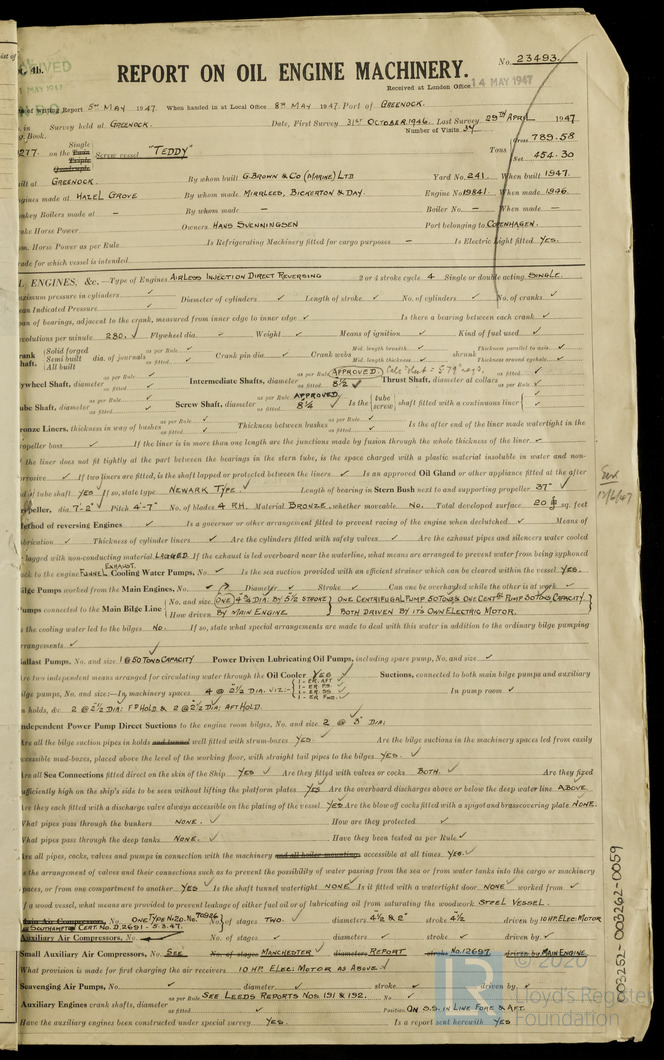 No. 23493.
4b.
REPORT ON OIL ENGINE MACHINERY.
Received at London Office 14 MAY 1947
of writing Report 5TH MAY 1947. When handed in at Local Office 8TH MAY 1947. Port of GREENOCK.
Survey held at GREENOCK. Date, First Survey 31ST OCTOBER 1946. Last Survey 29TH APRIL 1947
Book. Number of Visits 34
277. on the Single Twin Triple Quadruple Screw vessel "TEDDY" Tons Gross 789.58 Net 454.30
GREENOCK By whom built G. BROWN & CO (MARINE) LTD Yard No. 241 When built 1947.
made at HAZEL GROVE By whom made MIRRLEES, BICKERTON & DAY. Engine No. When made 1946.
Boilers made at — By whom made — Boiler No. — When made —
Horse Power Owners HANS SVENNINGSEN Port belonging to COPENHAGEN.
Horse Power as per Rule Is Refrigerating Machinery fitted for cargo purposes — Is Electric Light fitted YES.
for which vessel is intended
ENGINES, &c.—Type of Engines AIRLESS INJECTION DIRECT REVERSING 2 or 4 stroke cycle 4 Single or double acting SINGLE.
pressure in cylinders ✓ Diameter of cylinders ✓ Length of stroke ✓ No. of cylinders ✓ No. of cranks ✓
Indicated Pressure ✓
of bearings, adjacent to the crank, measured from inner edge to inner edge ✓ Is there a bearing between each crank ✓
Revolutions per minute 280. ✓ Flywheel dia. ✓ Weight ✓ Means of ignition ✓ Kind of fuel used ✓
Crank Shaft, Solid forged Semi built All built dia. of journals as per Rule as fitted Crank pin dia. ✓ Crank webs Mid. length breadth Mid. length thickness shrunk Thickness parallel to axis Thickness around eyehole
Flywheel Shaft, diameter as per Rule as fitted Intermediate Shafts, diameter as per Rule APPROVED. as fitted 8½ ✓ Thrust Shaft, diameter at collars as per Rule as fitted
Tube Shaft, diameter as per Rule as fitted Screw Shaft, diameter as per Rule APPROVED as fitted 8¼ ✓ Is the tube screw shaft fitted with a continuous liner
Bronze Liners, thickness in way of bushes as per Rule as fitted Thickness between bushes as per Rule as fitted Is the after end of the liner made watertight in the
propeller boss ✓ If the liner is in more than one length are the junctions made by fusion through the whole thickness of the liner. ✓
If the liner does not fit tightly at the part between the bearings in the stern tube, is the space charged with a plastic material insoluble in water and non-
corrosive ✓ If two liners are fitted, is the shaft lapped or protected between the liners ✓ Is an approved Oil Gland or other appliance fitted at the after
end of tube shaft YES If so, state type NEWARK TYPE. ✓ Length of bearing in Stern Bush next to and supporting propeller 37" ✓
Propeller, dia. 7'-2" Pitch 4'-7" No. of blades 4 RH. Material BRONZE. whether moveable NO. Total developed surface 20 sq. feet
Method of reversing Engines ✓ Is a governor or other arrangement fitted to prevent racing of the engine when declutched ✓ Means of
lubrication ✓ Thickness of cylinder liners ✓ Are the cylinders fitted with safety valves ✓ Are the exhaust pipes and silencers water cooled
lagged with non-conducting material LAGGED If the exhaust is led overboard near the waterline, what means are arranged to prevent water from being syphoned
back to the engine FUNNEL EXHAUST. Cooling Water Pumps, No. ✓ Is the sea suction provided with an efficient strainer which can be cleared within the vessel YES.
Bilge Pumps worked from the Main Engines, No. ✓ Diameter ✓ Stroke ✓ Can one be overhauled while the other is at work ✓
Pumps connected to the Main Bilge Line No. and size ONE 4¾ DIA. BY 5½ STROKE ONE CENTRIFUGAL PUMP 50 TONS & ONE CENTGL PUMP 30 TONS CAPACITY.
How driven BY MAIN ENGINE BOTH DRIVEN BY IT'S OWN ELECTRIC MOTOR.
Is the cooling water led to the bilges NO. If so, state what special arrangements are made to deal with this water in addition to the ordinary bilge pumping
arrangements ✓
Ballast Pumps, No. and size 1 @ 50 TONS CAPACITY Power Driven Lubricating Oil Pumps, including spare pump, No. and size ✓
Are two independent means arranged for circulating water through the Oil Cooler YES Suctions, connected to both main bilge pumps and auxiliary
bilge pumps, No. and size:—In machinery spaces 4 @ 2½ DIA. VIZ:- 1-ER. AFT 1-ER PS. 1-ER SS 1-ER FWD. In pump room ✓
In holds, &c 2 @ 2½ DIA: FD HOLD & 2 @ 2½ DIA: AFT HOLD.
Independent Power Pump Direct Suctions to the engine room bilges, No. and size 2 @ 3" DIA:
Are all the bilge suction pipes in holds and tunnel well fitted with strum-boxes YES Are the bilge suctions in the machinery spaces led from easily
accessible mud-boxes, placed above the level of the working floor, with straight tail pipes to the bilges YES. ✓
Are all Sea Connections fitted direct on the skin of the Ship YES ✓ Are they fitted with valves or cocks BOTH. ✓ Are they fixed
sufficiently high on the ship's side to be seen without lifting the platform plates YES Are the overboard discharges above or below the deep water line ABOVE
Are they each fitted with a discharge valve always accessible on the plating of the vessel YES Are the blow off cocks fitted with a spigot and brass covering plate NONE.
What pipes pass through the bunkers NONE. ✓ How are they protected ✓
What pipes pass through the deep tanks NONE. ✓ Have they been tested as per Rule ✓
Are all pipes, cocks, valves and pumps in connection with the machinery and all boiler mountings accessible at all times YES. ✓
Is the arrangement of valves and their connections such as to prevent the possibility of water passing from the sea or from water tanks into the cargo or machinery
spaces, or from one compartment to another YES ✓ Is the shaft tunnel watertight NONE Is it fitted with a watertight door NONE worked from ✓
If a wood vessel, what means are provided to prevent leakage of either fuel oil or of lubricating oil from saturating the woodwork STEEL VESSEL.
Main Air Compressors, No. ONE TYPE N20. No. 70926 No. of stages TWO. diameters 4½ & 2" stroke 4½ driven by 10 H.P. ELEC: MOTOR
@ SOUTHAMPTON CERT. NO. D. 2691 - 5.3.47.
Auxiliary Air Compressors, No. ✓ No. of stages ✓ diameters ✓ stroke ✓ driven by ✓
Small Auxiliary Air Compressors, No. SEE No. of stages MANCHESTER diameters REPORT stroke No. 12697. driven by MAIN ENGINE
What provision is made for first charging the air receivers 10 HP. ELEC: MOTOR AS ABOVE
Scavenging Air Pumps, No. ✓ diameter ✓ stroke ✓ driven by ✓
Auxiliary Engines crank shafts, diameter as per Rule SEE LEEDS REPORTS NOS 191 & 192. as fitted No. ✓ Position ON S.S. IN LINE FORE & AFT.
Have the auxiliary engines been constructed under special survey YES. Is a report sent herewith YES
003252-003262-0059
© 2020
Lloyd's Register
Foundation